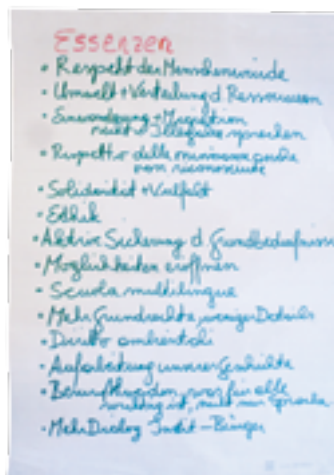 ESSENZEN
• Respekt der Menschenwürde
• Umwelt + Verteilung d. Ressourcen
• Einwanderung + Migration
nicht Illegalität sprechen
• Rispetto delle minoranze anche
non riconosciute
• Solidarität + Vielfalt
• Ethik
• Aktive Sicherung d. Grundbedürfnisse
• Möglichkeiten eröffnen
• Scuola multilingue
• Mehr Grundrechte, weniger Details
• Diritto ambientali
• Aufarbeitung unserer Geschichte
• Bewusstwerden, was für alle
wichtig ist, nicht nur Sprache
• Mehr Dialog Instit - Bürger